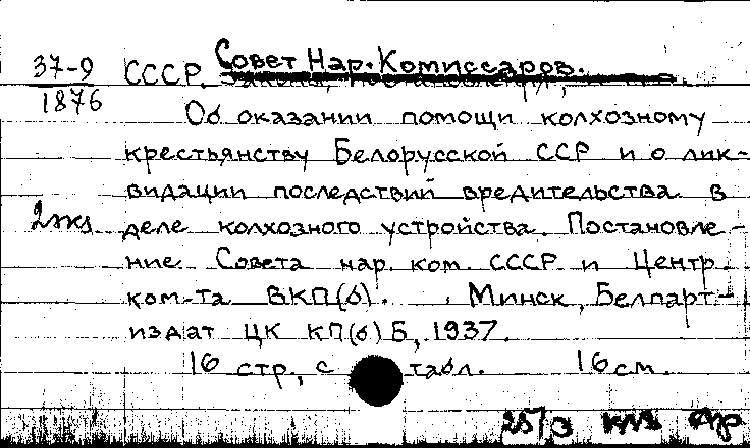 37-9
1876
СССР. Совет Нар. Комиссаров.
Об оказании помощи колхозному
крестьянству Белорусской ССР и о лик-
видации последствий вредительства в
2 экз
деле колхозного устройства. Постановле-
ние Совета нар. ком. СССР и Центр.
ком-та ВКП(б). Минск, Белпарт-
издат ЦК КП(б)Б, 1937.
16 стр., с табл. 16 см.